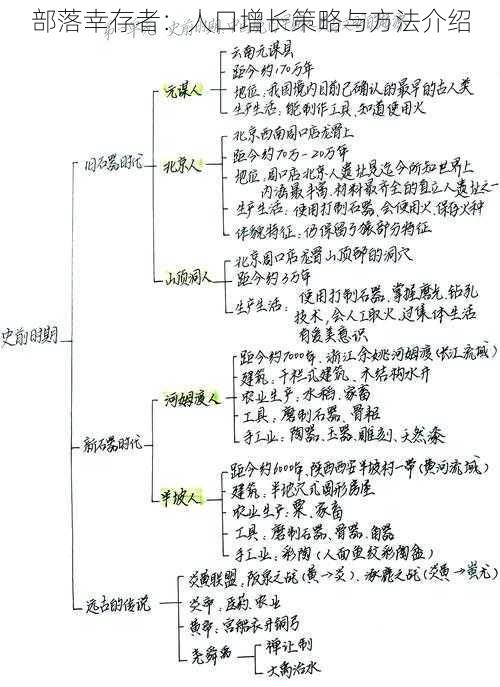 部落幸存者：人口增长策略与方法介绍
史前时期
旧石器时代
元谋人
云南元谋县
距今约170万年
地位：我国境内目前已确认的最早的古人类
生产生活：能制作工具、知道使用火
北京人
北京西南周口店龙骨山
距今约70万-20万年
地位：周口店北京人遗址是迄今所知世界上
内涵最丰富、材料最齐全的直立人遗址之一
生产生活：使用打制石器、会使用火、保存火种
体貌特征：仍保留了猿部分特征
山顶洞人
北京周口店龙骨山顶部的洞穴
距今约3万年
生产生活：使用打制石器、掌握磨光、钻孔
技术、会人工取火、过集体生活
有爱美意识
新石器时代
河姆渡人
距今约7000年、浙江余姚河姆渡（长江流域）
建筑：干栏式建筑、木结构水井
农业生产：水稻、家畜
工具：磨制石器、骨耜
手工业：陶器、玉器、雕刻、天然漆
半坡人
距今约6000年、陕西西安半坡村一带（黄河流域）
建筑：半地穴式圆形房屋
农业生产：粟、家畜
工具：磨制石器、骨器、角器
手工业：彩陶（人面鱼纹彩陶盆）
远古的传说
炎黄联盟：阪泉之战（黄→炎）、涿鹿之战（炎黄→蚩尤）
炎帝：医药、农业
黄帝：宫船衣井铜弓
尧舜禹
禅让制
大禹治水